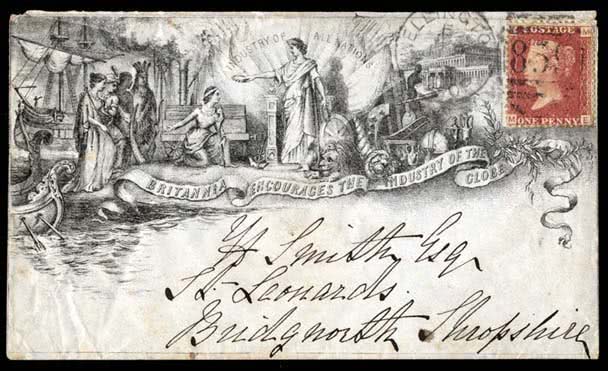 INDUSTRY OF ALL NATIONS
ELLINGTO
POSTAGE
M
85
M E
ONE PENNY
BRITANNIA ENCOURAGES THE INDUSTRY OF THE GLOBE
W Smith Esq
St. Leonards.
Bridgnorth Shropshire